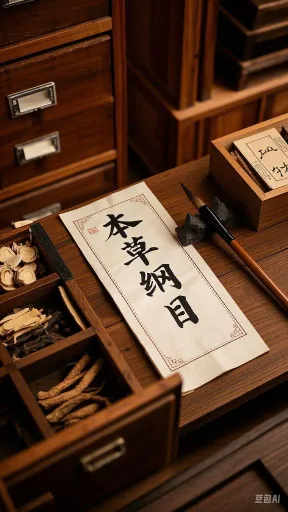 本草纲目
豆包AI